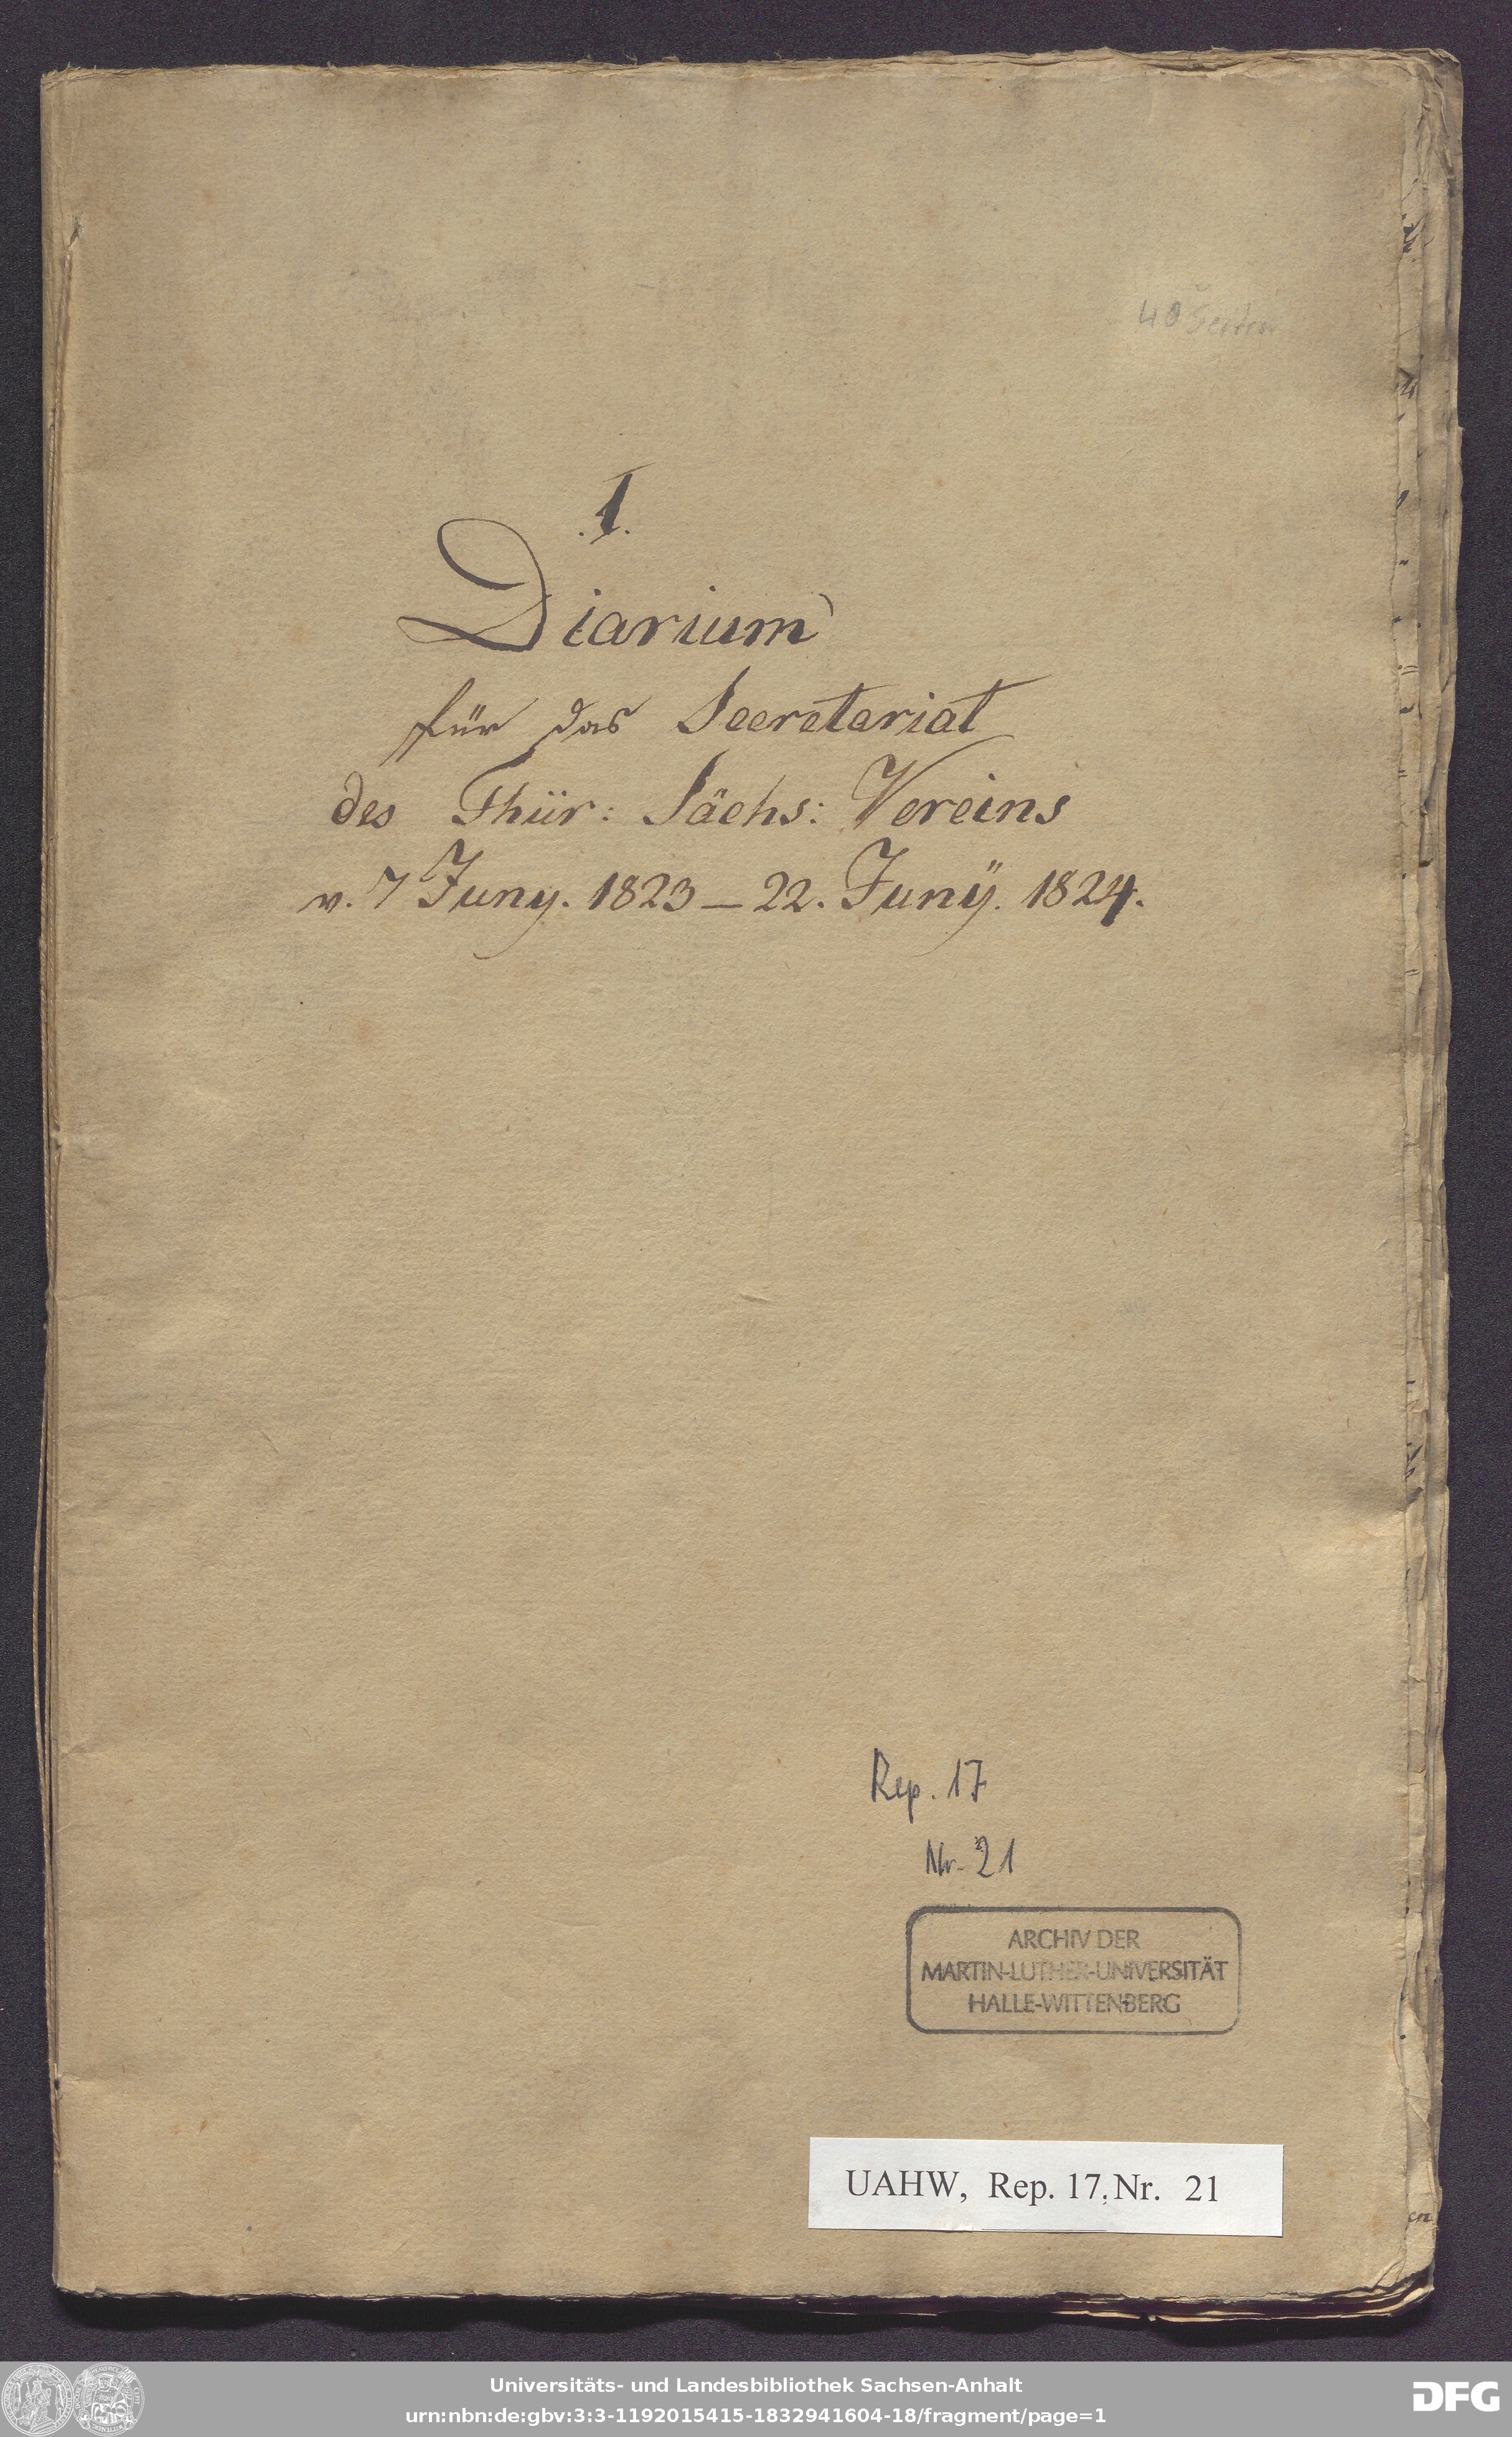 40 Seiten
.1.
Diarium
für das Secretariat
des Thür: Sächs: Vereins
v. 7 Juny. 1823 – 22. Junÿ. 1824.
Rep. 17
Nr. 21
ARCHIV DER
MARTIN-LUTHER-UNIVERSITÄT
HALLE-WITTENBERG
UAHW, Rep. 17, Nr. 21
en
Universitäts- und Landesbibliothek Sachsen-Anhalt
urn:nbn:de:gbv:3:3-1192015415-1832941604-18/fragment/page=1
DFG